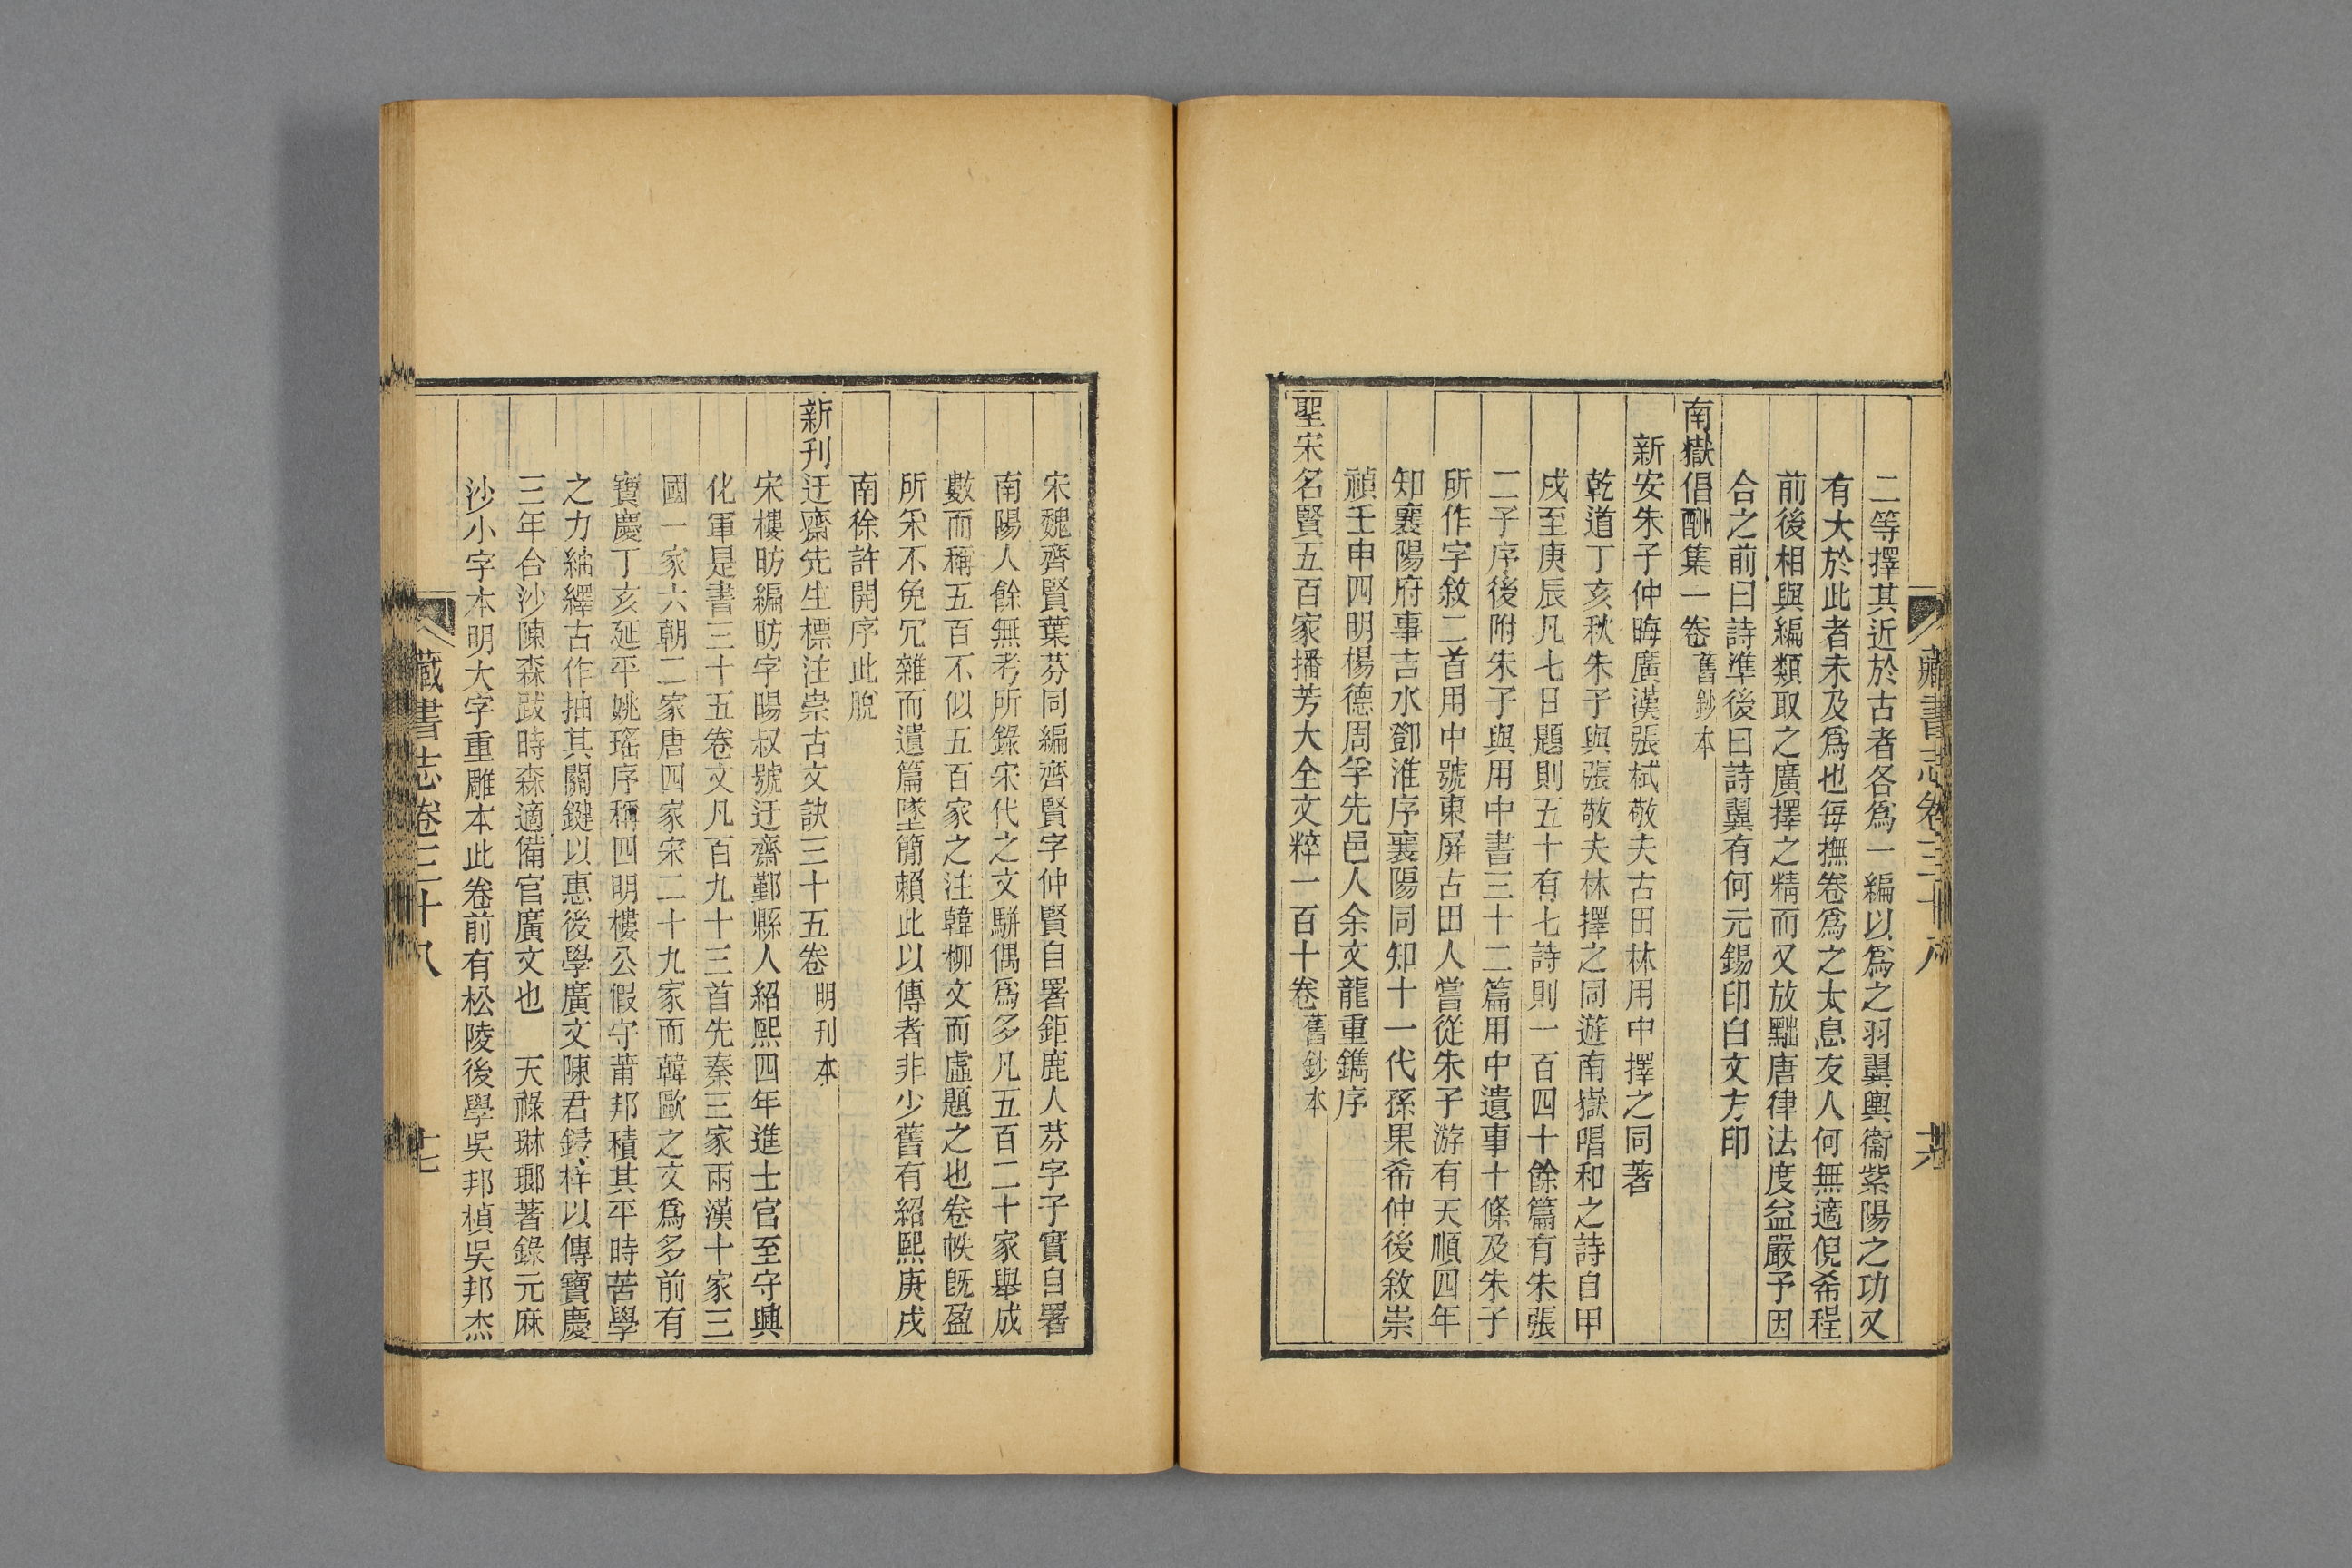 二等擇其近於古者各爲一編以爲之羽翼輿衞紫陽之功又
有大於此者未及爲也每撫卷爲之太息友人何無適倪希程
前後相與編類取之廣擇之精而又放黜唐律法度益嚴予因
合之前曰詩準後曰詩翼有何元錫印白文方印
南嶽倡酬集一卷舊鈔本
新安朱子仲晦廣漢張栻敬夫古田林用中擇之同著
乾道丁亥秋朱子與張敬夫林擇之同遊南嶽唱和之詩自甲
戌至庚辰凡七日題則五十有七詩則一百四十餘篇有朱張
二子序後附朱子與用中書三十二篇用中遺事十條及朱子
所作字敘二首用中號東屏古田人嘗從朱子游有天順四年
知襄陽府事吉水鄧淮序襄陽同知十一代孫果希仲後敘崇
禎壬申四明楊德周孚先邑人余文龍重鐫序
聖宋名賢五百家播芳大全文粹一百十卷舊鈔本
藏書志卷三十八
宋魏齊賢葉芬同編齊賢字仲賢自署鉅鹿人芬字子實自署
南陽人餘無考所錄宋代之文駢偶爲多凡五百二十家舉成
數而稱五百不似五百家之注韓柳文而虛題之也卷帙旣盈
所釆不免冗雜而遺篇墜簡賴此以傳者非少舊有紹熙庚戌
南徐許開序此脫
新刊迂齋先生標注崇古文訣三十五卷明刊本
宋樓昉編昉字暘叔號迂齋鄞縣人紹熙四年進士官至守興
化軍是書三十五卷文凡百九十三首先秦三家兩漢十家三
國一家六朝二家唐四家宋二十九家而韓歐之文爲多前有
寶慶丁亥延平姚瑤序稱四明樓公假守莆邦積其平時苦學
之力紬繹古作抽其關鍵以惠後學廣文陳君鋟梓以傳寶慶
三年合沙陳森跋時森適備官廣文也　天祿琳瑯著錄元麻
沙小字本明大字重雕本此卷前有松陵後學吳邦楨吳邦杰
藏書志卷三十八